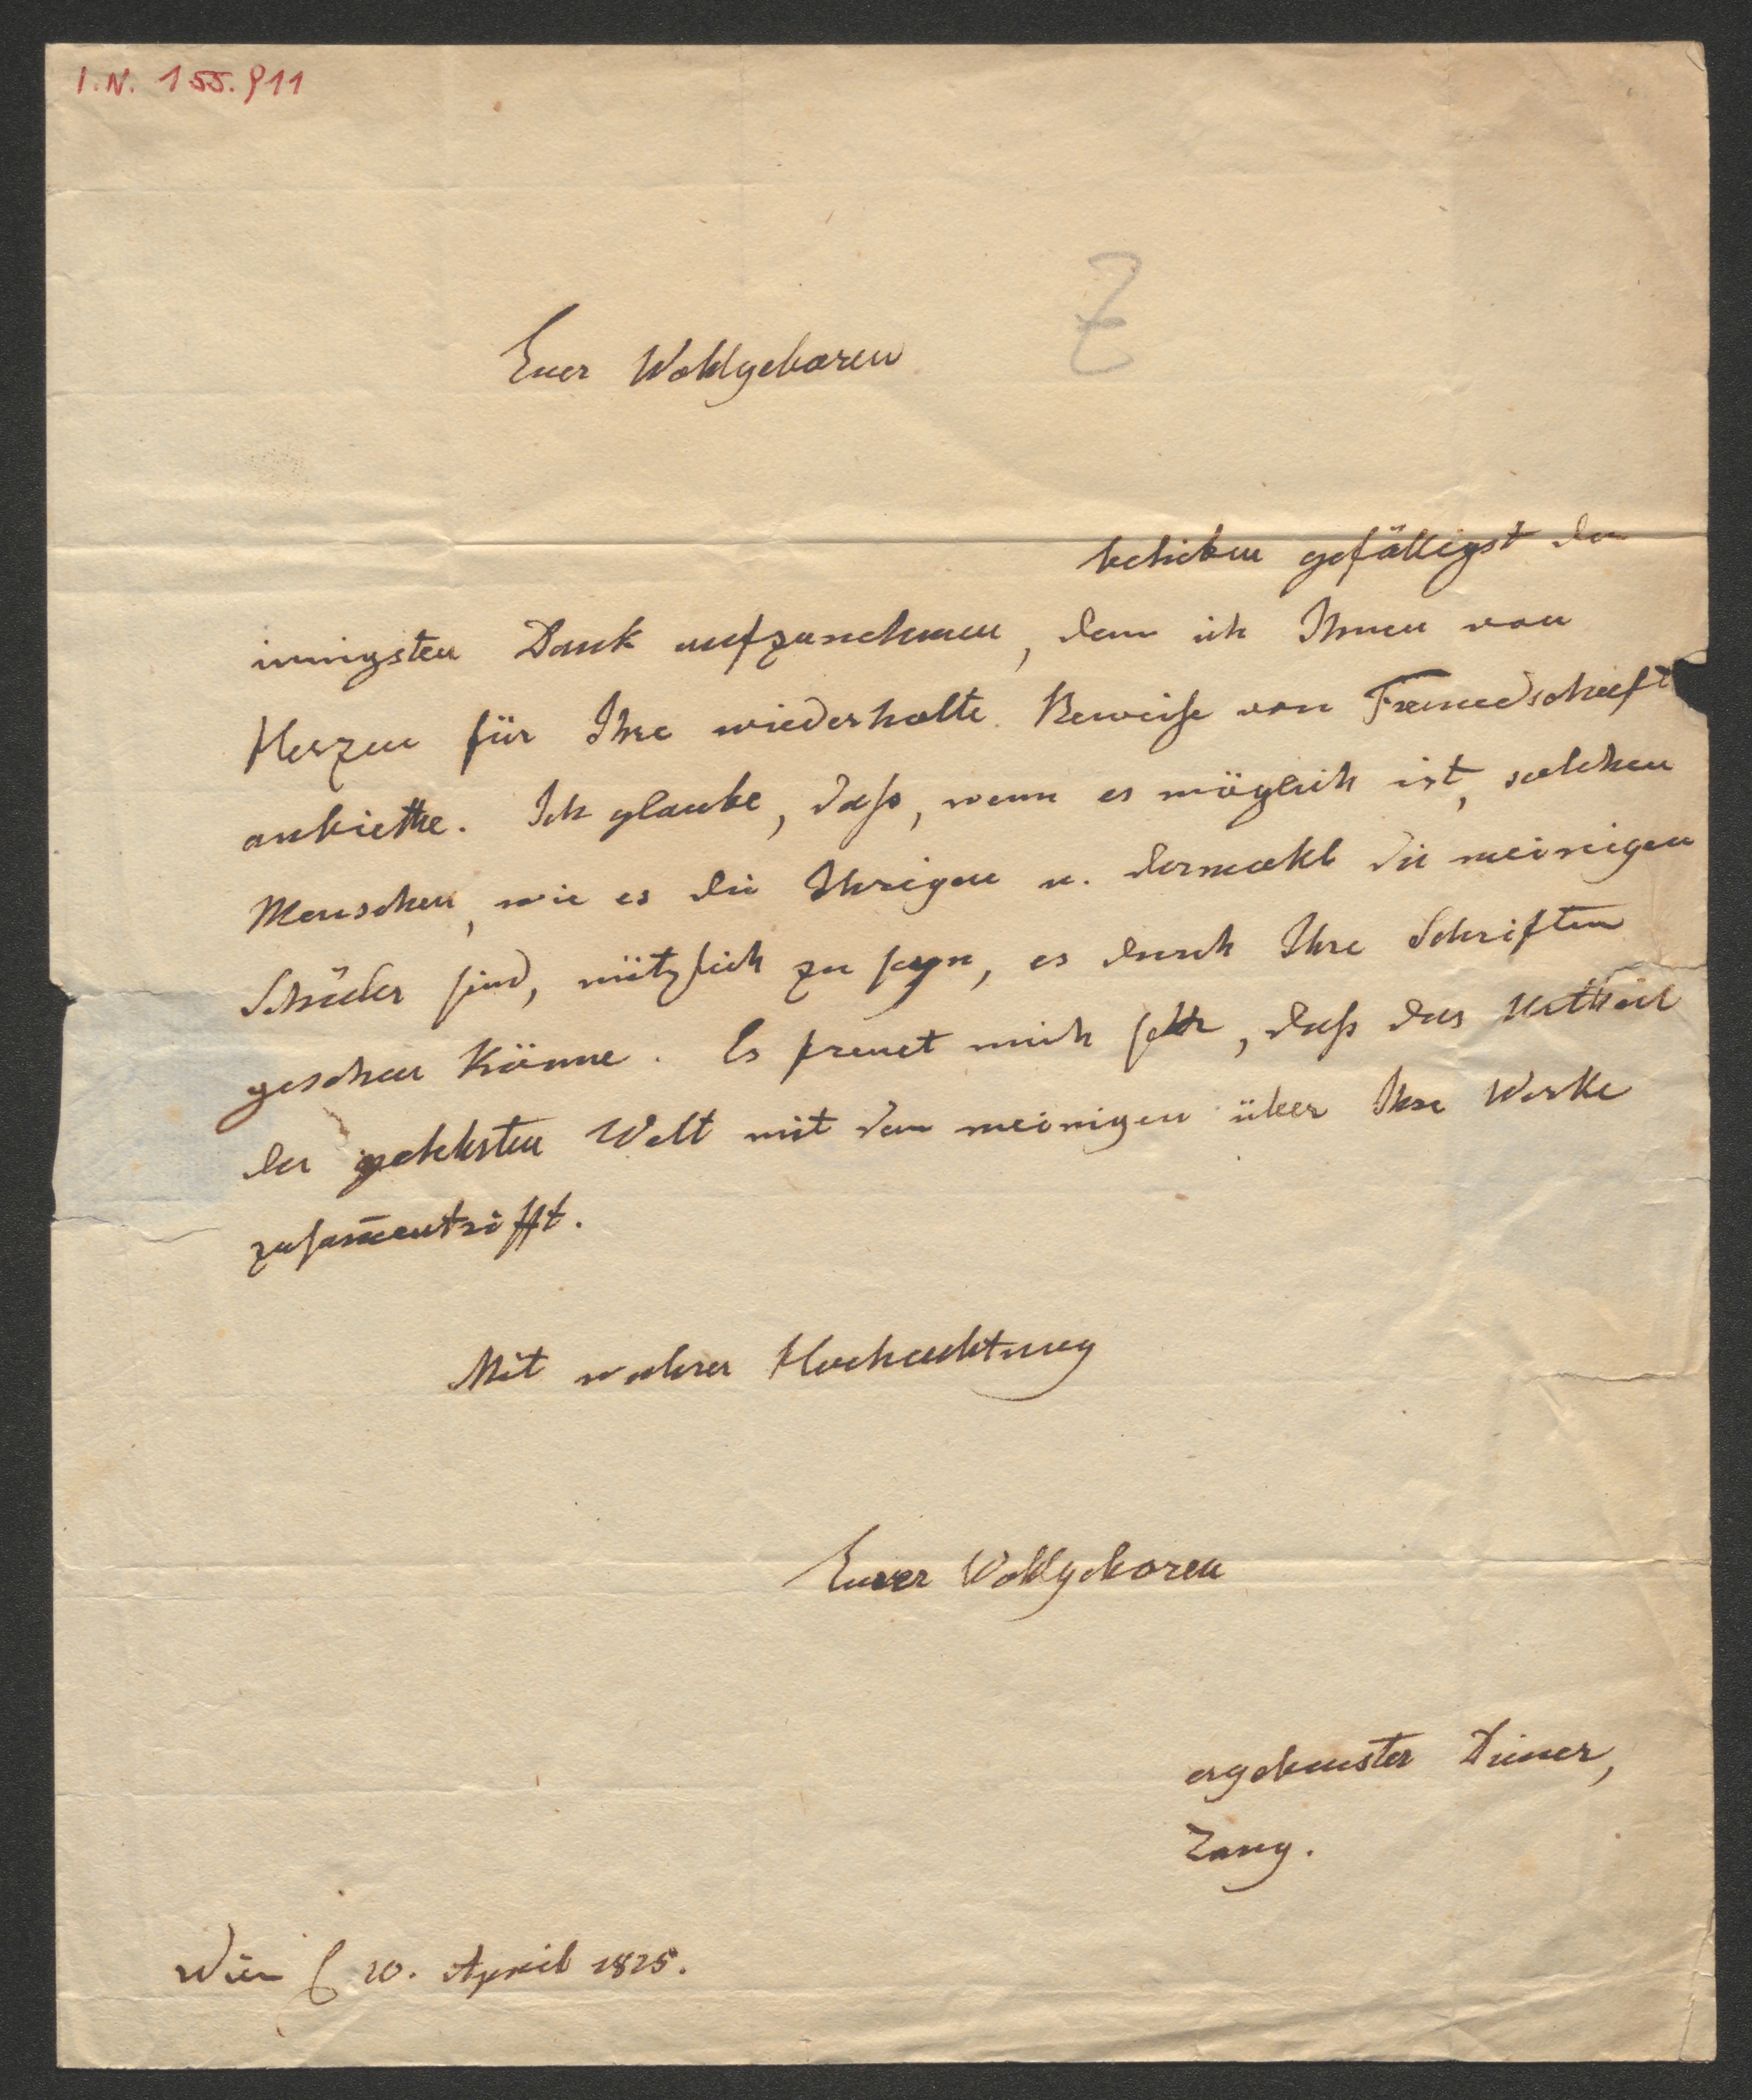 I.N. 155.911
Z
Euer Wohlgeboren
belieben gefälligst den
innigsten Dank aufzunehmen, den ich Ihnen von
Herzen für Ihre wiederholte Beweise von Freundschaft
anbiethe. Ich glaube, daß, wenn es möglich ist, solchen
Menschen, wie es die Ihrigen u. dermahl die meinigen
Schüler sind, nützlich zu seyn, es durch Ihre Schriften
geschehen könne. Es freuet mich sehr, daß das Urtheil
der gelehrten Welt mit dem meinigen über Ihre Werke
zusam̅entrifft.
Mit wahrer Hochachtung
Euer Wohlgeboren
ergebenster Diener,
Zang.
Wien 20. April 1825.